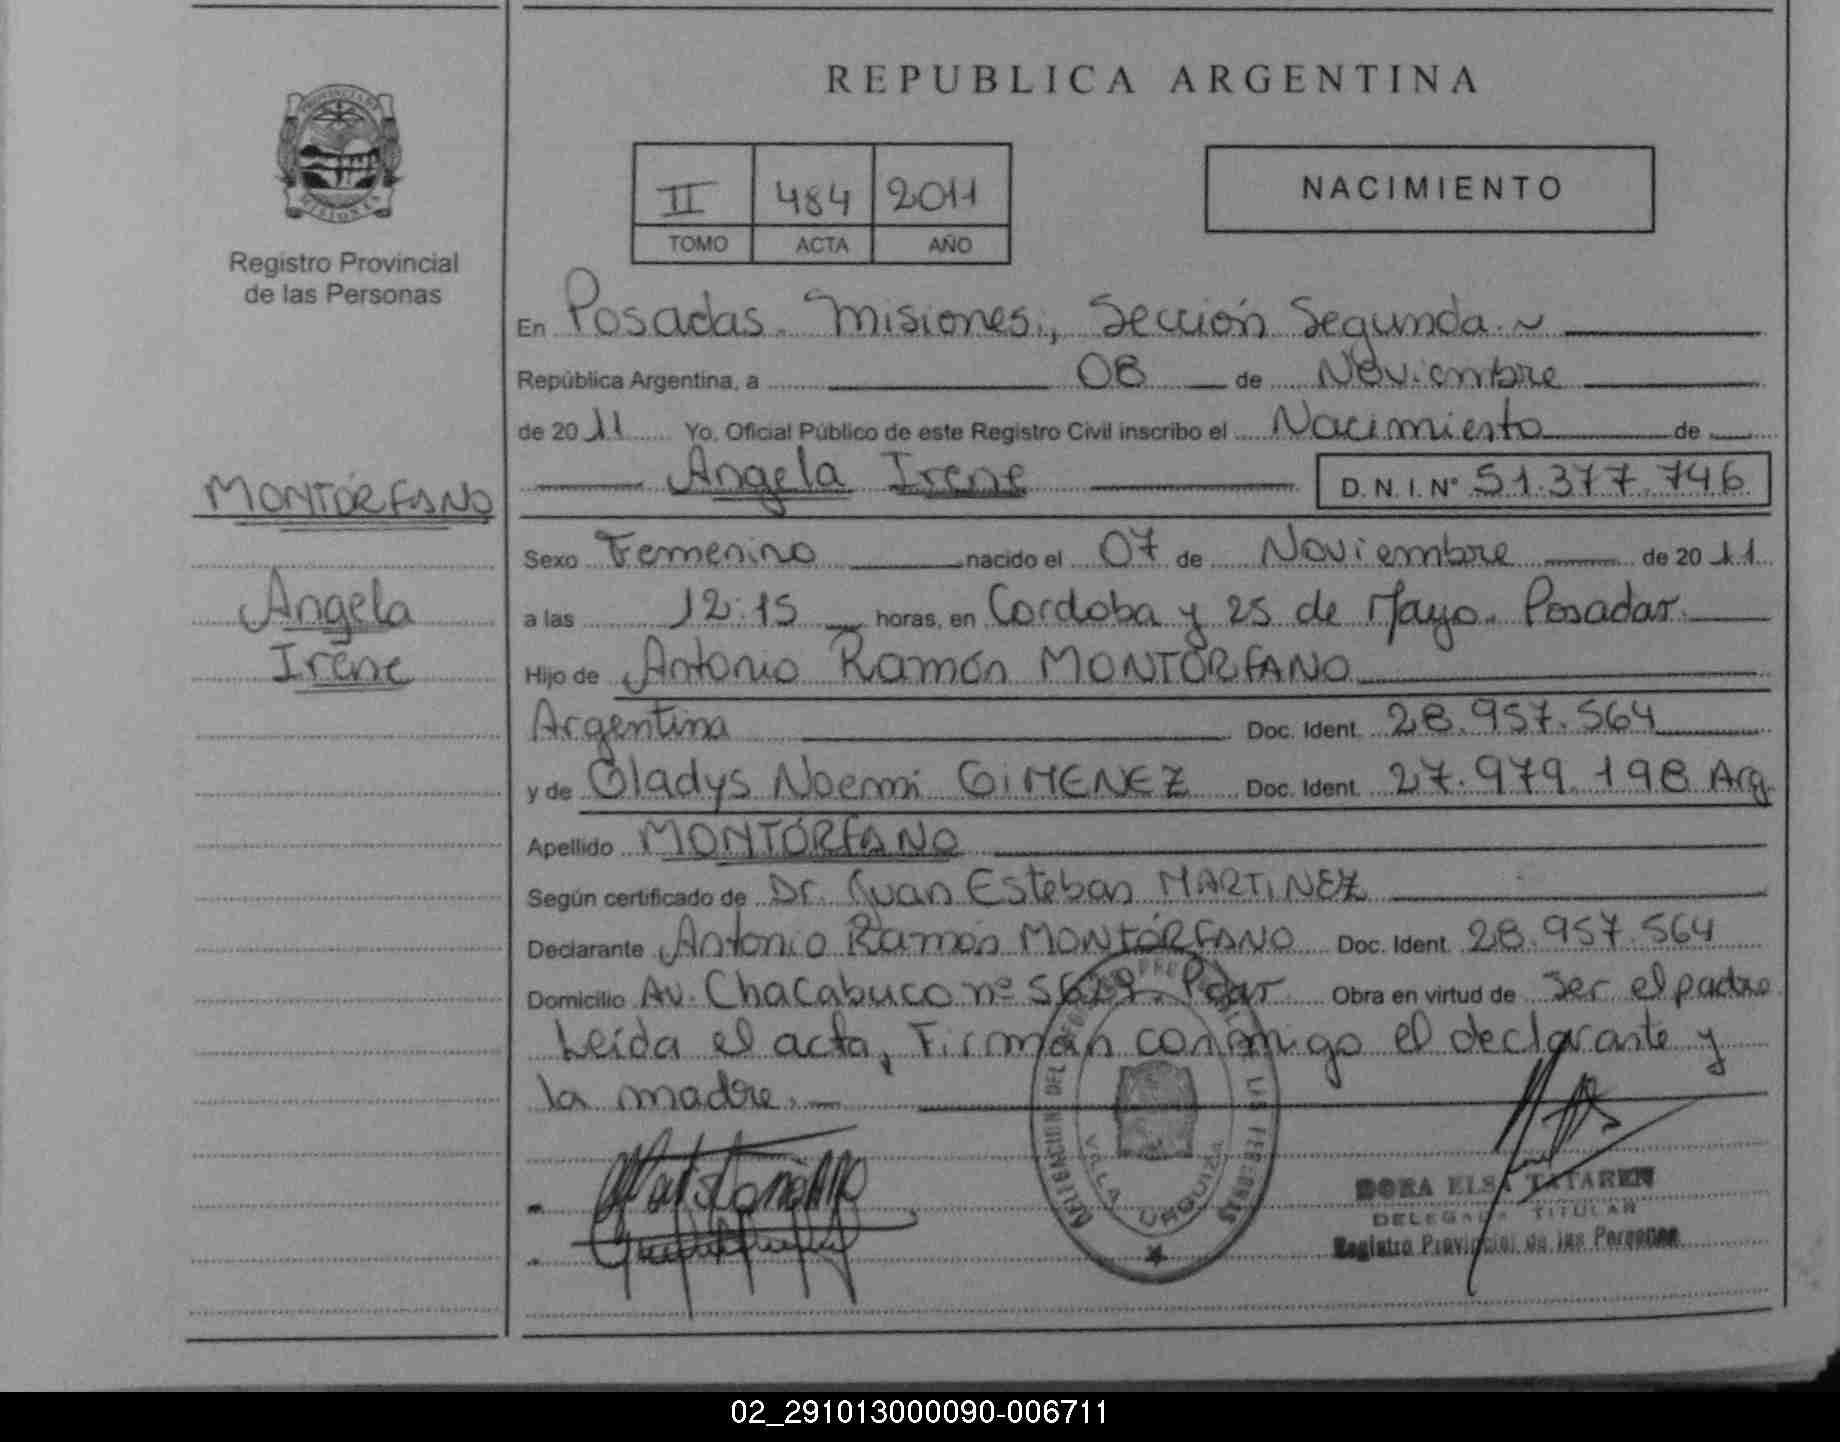 REPUBLICA ARGENTINA
PROVINCIA DE
MISIONES
Registro Provincial
de las Personas
II 484 2011
TOMO ACTA AÑO
NACIMIENTO
En Posadas. Misiones., Sección Segunda. ~
República Argentina, a 08 de Noviembre
de 2011 Yo, Oficial Público de este Registro Civil inscribo el Nacimiento de
Angela Irene D.N.I. N° 51.377.746
MONTÓRFANO
Angela
Irene
Sexo Femenino nacido el 07 de Noviembre de 2011
a las 12:15 horas, en Cordoba y 25 de Mayo. Posadas.
Hijo de Antonio Ramón MONTÓRFANO
Argentina Doc. Ident. 28.957.564
y de Gladys Noemi GIMENEZ Doc. Ident. 27.979.198 Arg.
Apellido MONTÓRFANO
Según certificado de Dr. Juan Esteban MARTINEZ
Declarante Antonio Ramón MONTÓRFANO Doc. Ident. 28.957.564
Domicilio Av. Chacabuco nº Pdas Obra en virtud de Ser el padre
Leída el acta, Firman conmigo el declarante y
la madre. —
VILLA URQUIZA
DORA ELSA TATAREN
DELEGADA TITULAR
Registro Provincial de las Personas
02_291013000090-006711